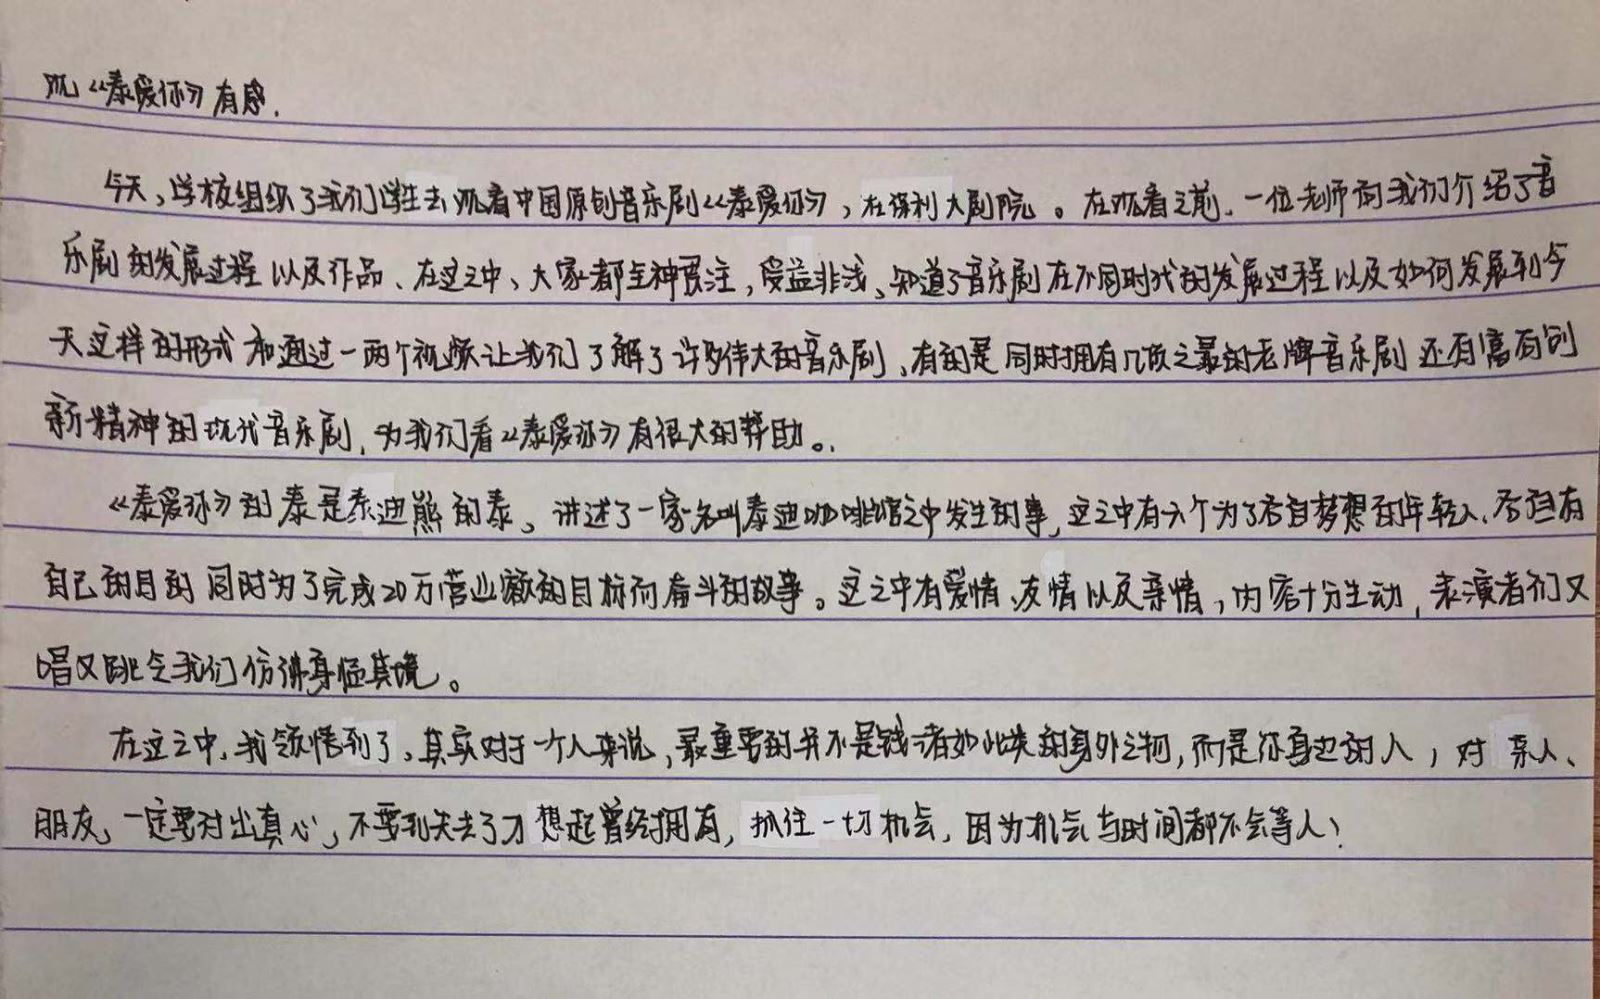 观《泰爱你》有感.
今天,学校组织了我们学生去观看中国原创音乐剧《泰爱你》,在保利大剧院。在观看之前,一位老师向我们介绍了音
乐剧的发展过程以及作品、在这之中、大家都全神贯注,受益非浅、知道了音乐剧在不同时代的发展过程以及如何发展到今
天这样的形式和通过一两个视频让我们了解了许多伟大的音乐剧、有的是同时拥有几项之最的老牌音乐剧还有富有创
新精神的现代音乐剧,为我们看《泰爱你》有很大的帮助。
《泰爱你》的泰是泰迪熊的泰、讲述了一家名叫泰迪咖啡馆之中发生的事,这之中有六个为了各自梦想的年轻人、各自有
自己的目的同时为了完成20万营业额的目标而奋斗的故事。这之中有爱情、友情以及亲情,内容十分生动,表演者们又
唱又跳令我们仿佛身临其境。
在这之中,我领悟到了、其实对于一个人来说,最重要的并不是钱诸如此类的身外之物,而是你身边的人,对亲人、
朋友,一定要付出真心,不要到失去了才想起曾经拥有,抓住一切机会,因为机会与时间都不会等人!